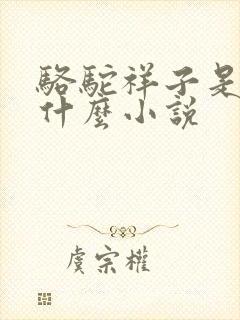 駱駝祥子是
什麼小說
虞宗權